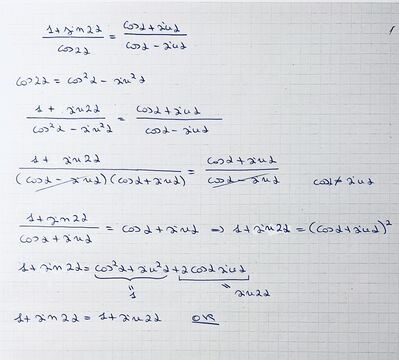 (1+sin2α)/(cos2α) = (cosα+sinα)/(cosα-sinα)
cos2α = cos²α - sin²α
(1 + sin2α)/(cos²α - sin²α) = (cosα+sinα)/(cosα-sinα)
(1 + sin2α)/((cosα-sinα)(cosα+sinα)) = (cosα+sinα)/(cosα-sinα) cosα≠sinα
(1+sin2α)/(cosα+sinα) = cosα+sinα ⇒ 1+sin2α = (cosα+sinα)²
1+sin2α = cos²α+sin²α+2cosα sinα
1 sin2α
1+sin2α = 1+sin2α